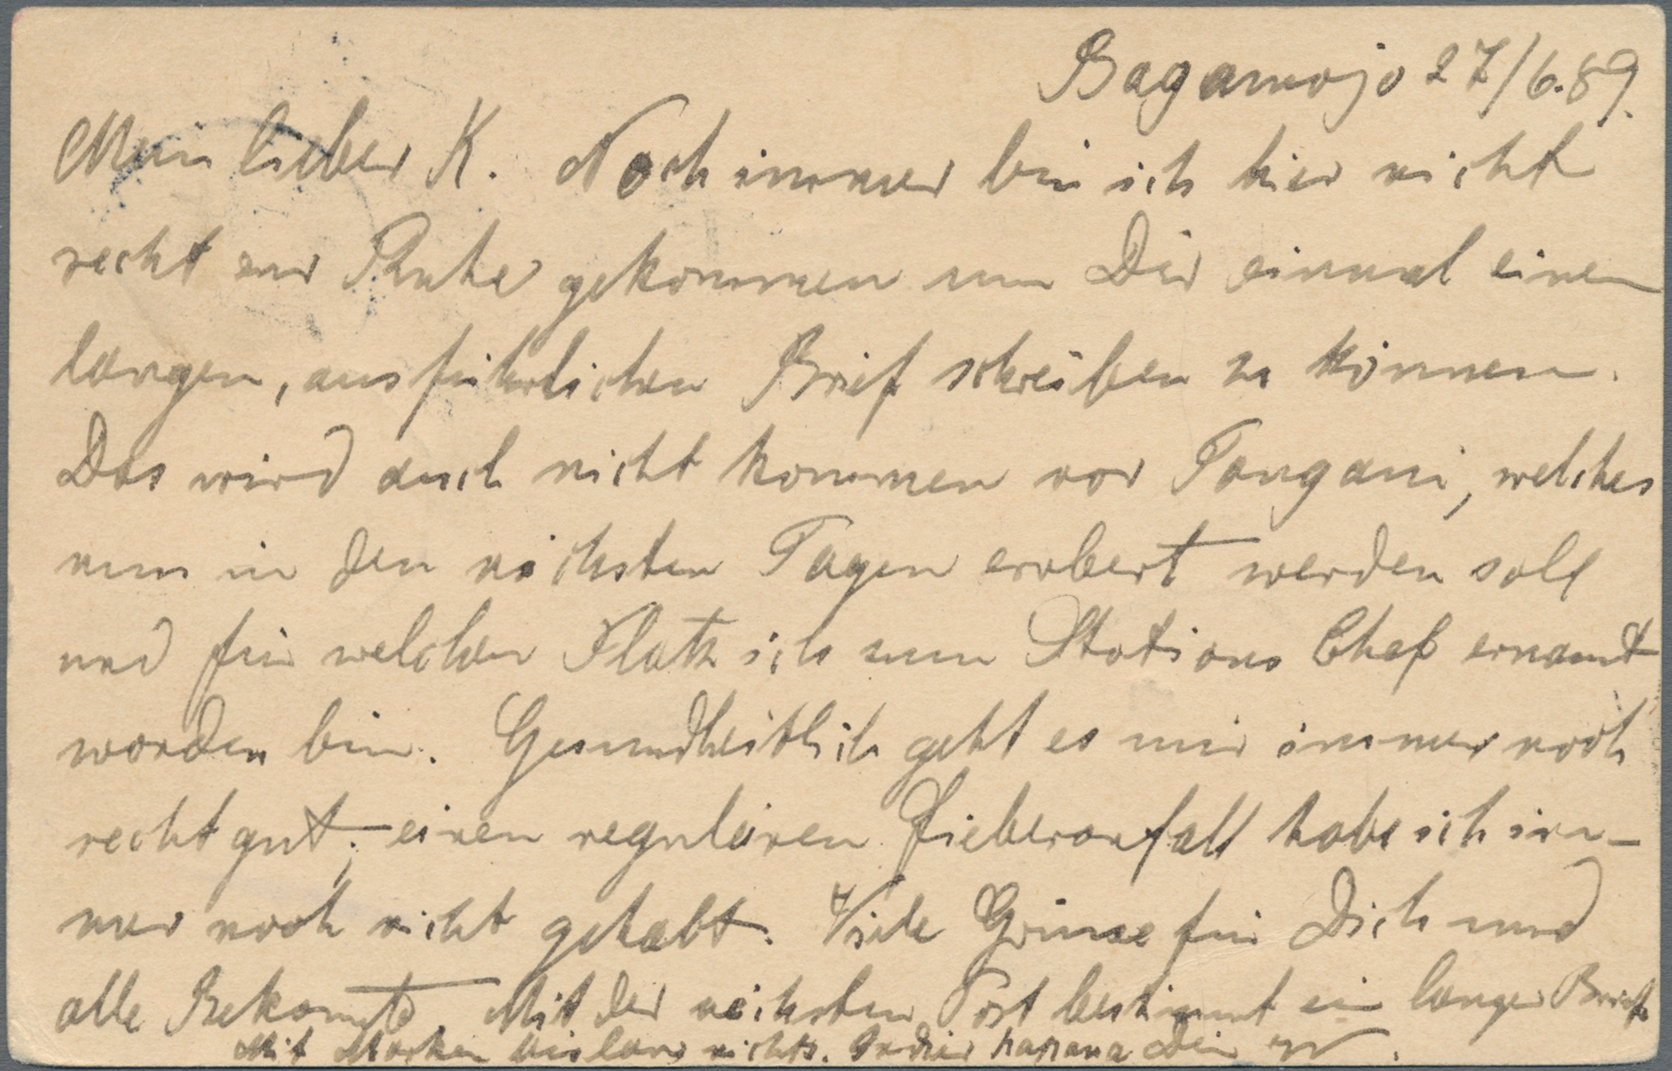 Bagamojo 27/6.89.
Mein lieber K. Noch immer bin ich hier nicht
recht zur Ruhe gekommen um Dir einmal einen
langen, ausführlichen Brief schreiben zu können.
Das wird auch nicht kommen vor Pangani, welches
nun in den nächsten Tagen erobert werden soll
und für welchen Platz ich zum Stations Chef ernannt
worden bin. Gesundheitlich geht es mir immer noch
recht gut, einen regulären Fieberanfall habe ich im-
mer noch nicht gehabt. Viele Grüsse für Dich und
alle Bekannte. Mit der nächsten Post bestimmt ein langer Brief
Mit Marken bislang nichts. hapana Dein W.